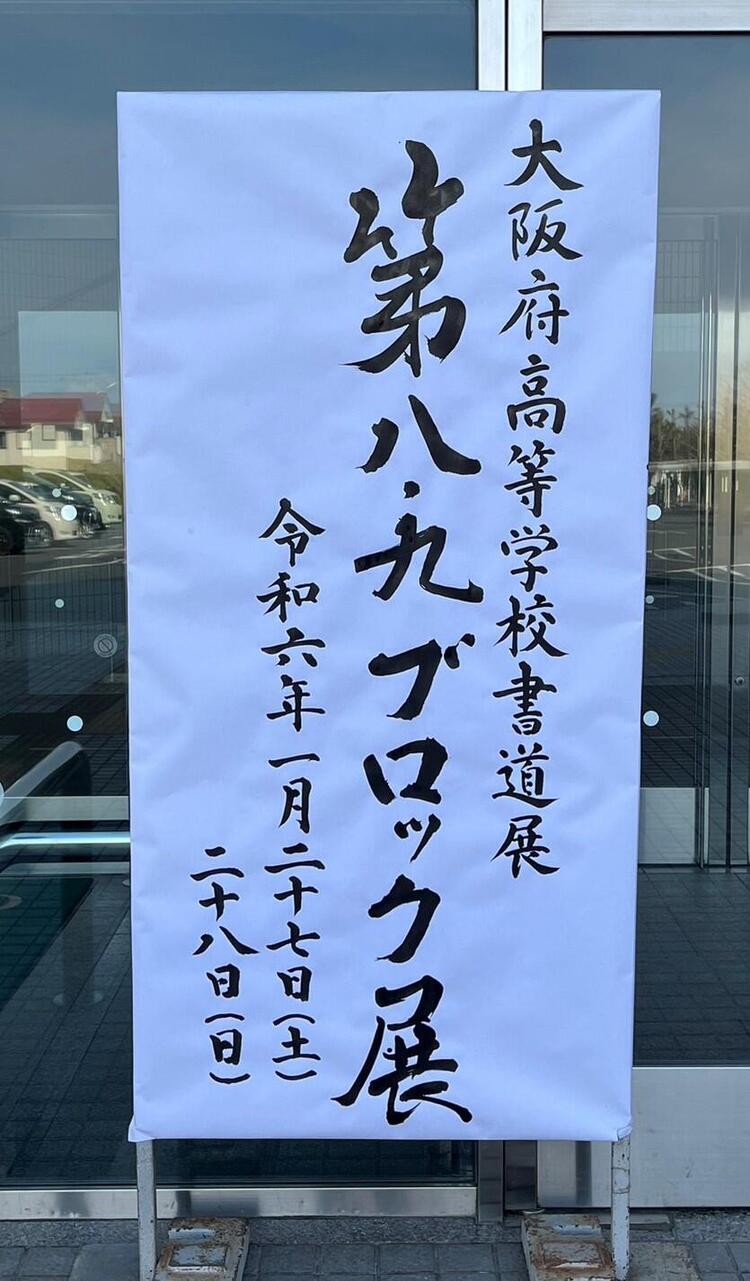 大阪府高等学校書道展
第八・九ブロック展
令和六年一月二十七日(土)
二十八日(日)